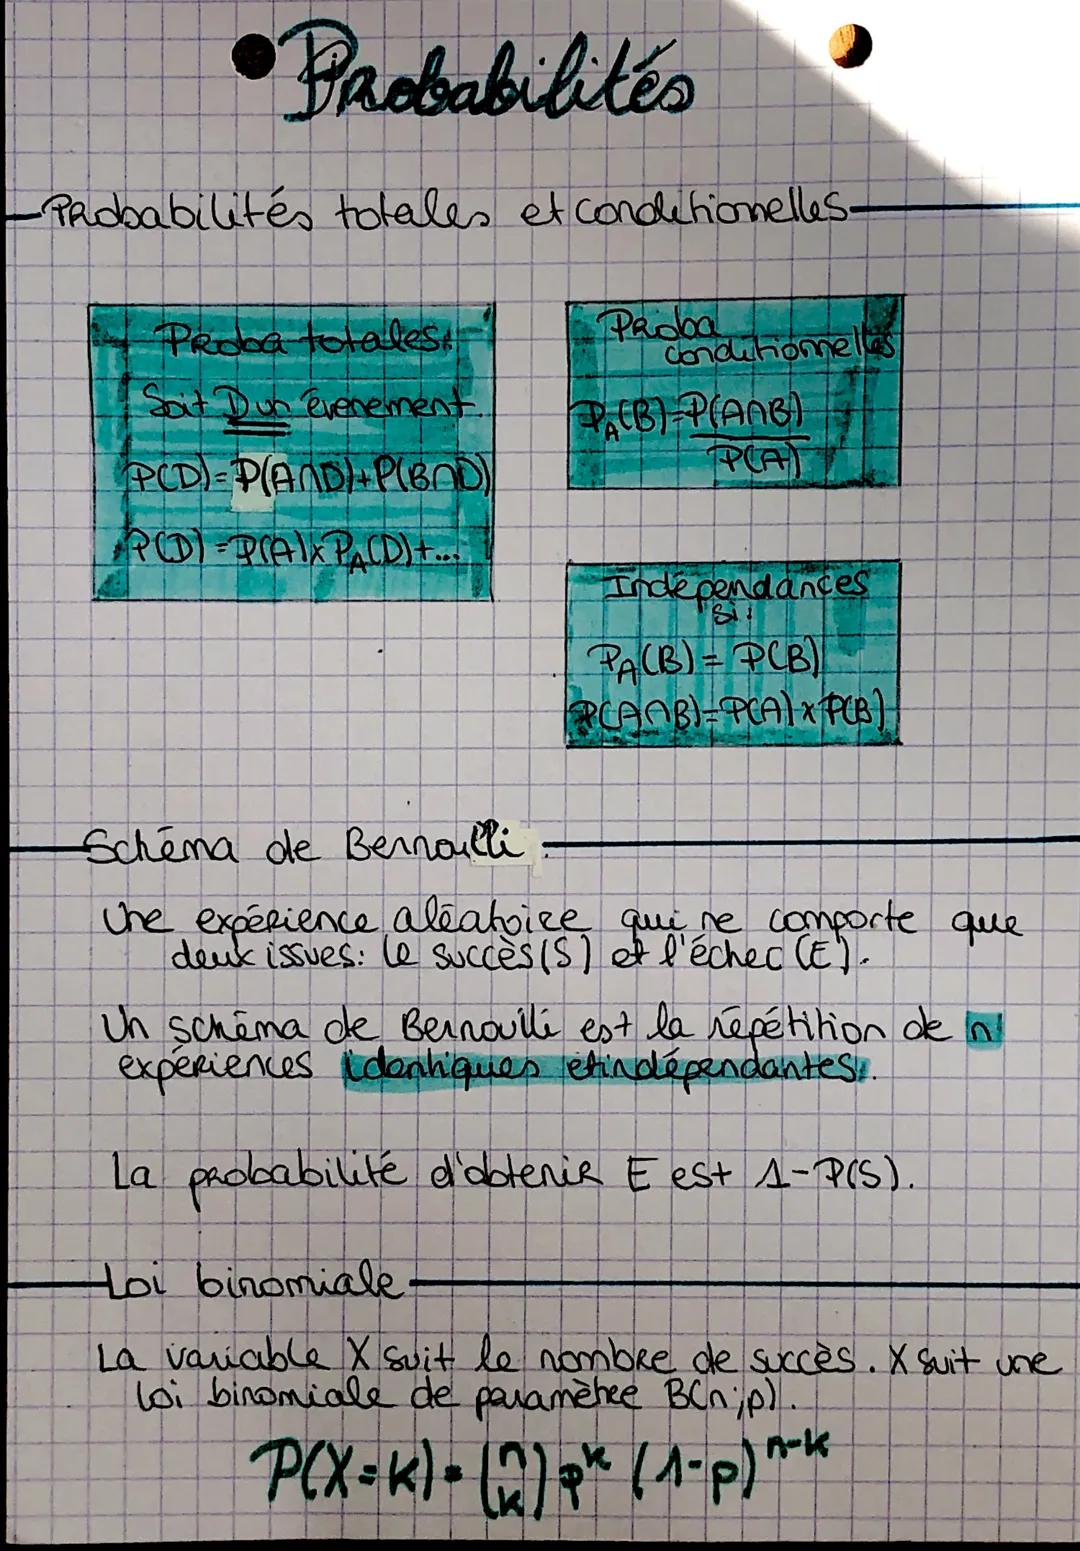 Probabilités
Probabilités totales et conditionnelles
Proba totales:
Soit D un évenement
P(D)=P(A∩D)+P(B∩D)
P(D)=P(A)x PA(D)+...
Proba
conditionnelles
PA(B)=P(A∩B)
P(A)
Indépendances
si:
PA(B) = P(B)
P(A∩B)=P(A) x P(B)
Schéma de Bernoulli.
Une expérience aléatoire qui ne comporte que
deux issues: le succès (S) et l'échec (E).
Un schéma de Bernouilli est la répétition de n
expériences identiques et indépendantes.
La probabilité d'obtenir E est 1-P(S).
Loi binomiale
La variable X suit le nombre de succès. X suit une
loi binomiale de paramètre B(n;p).
P(X=k)=(n k) p^k (1-p)^n-k